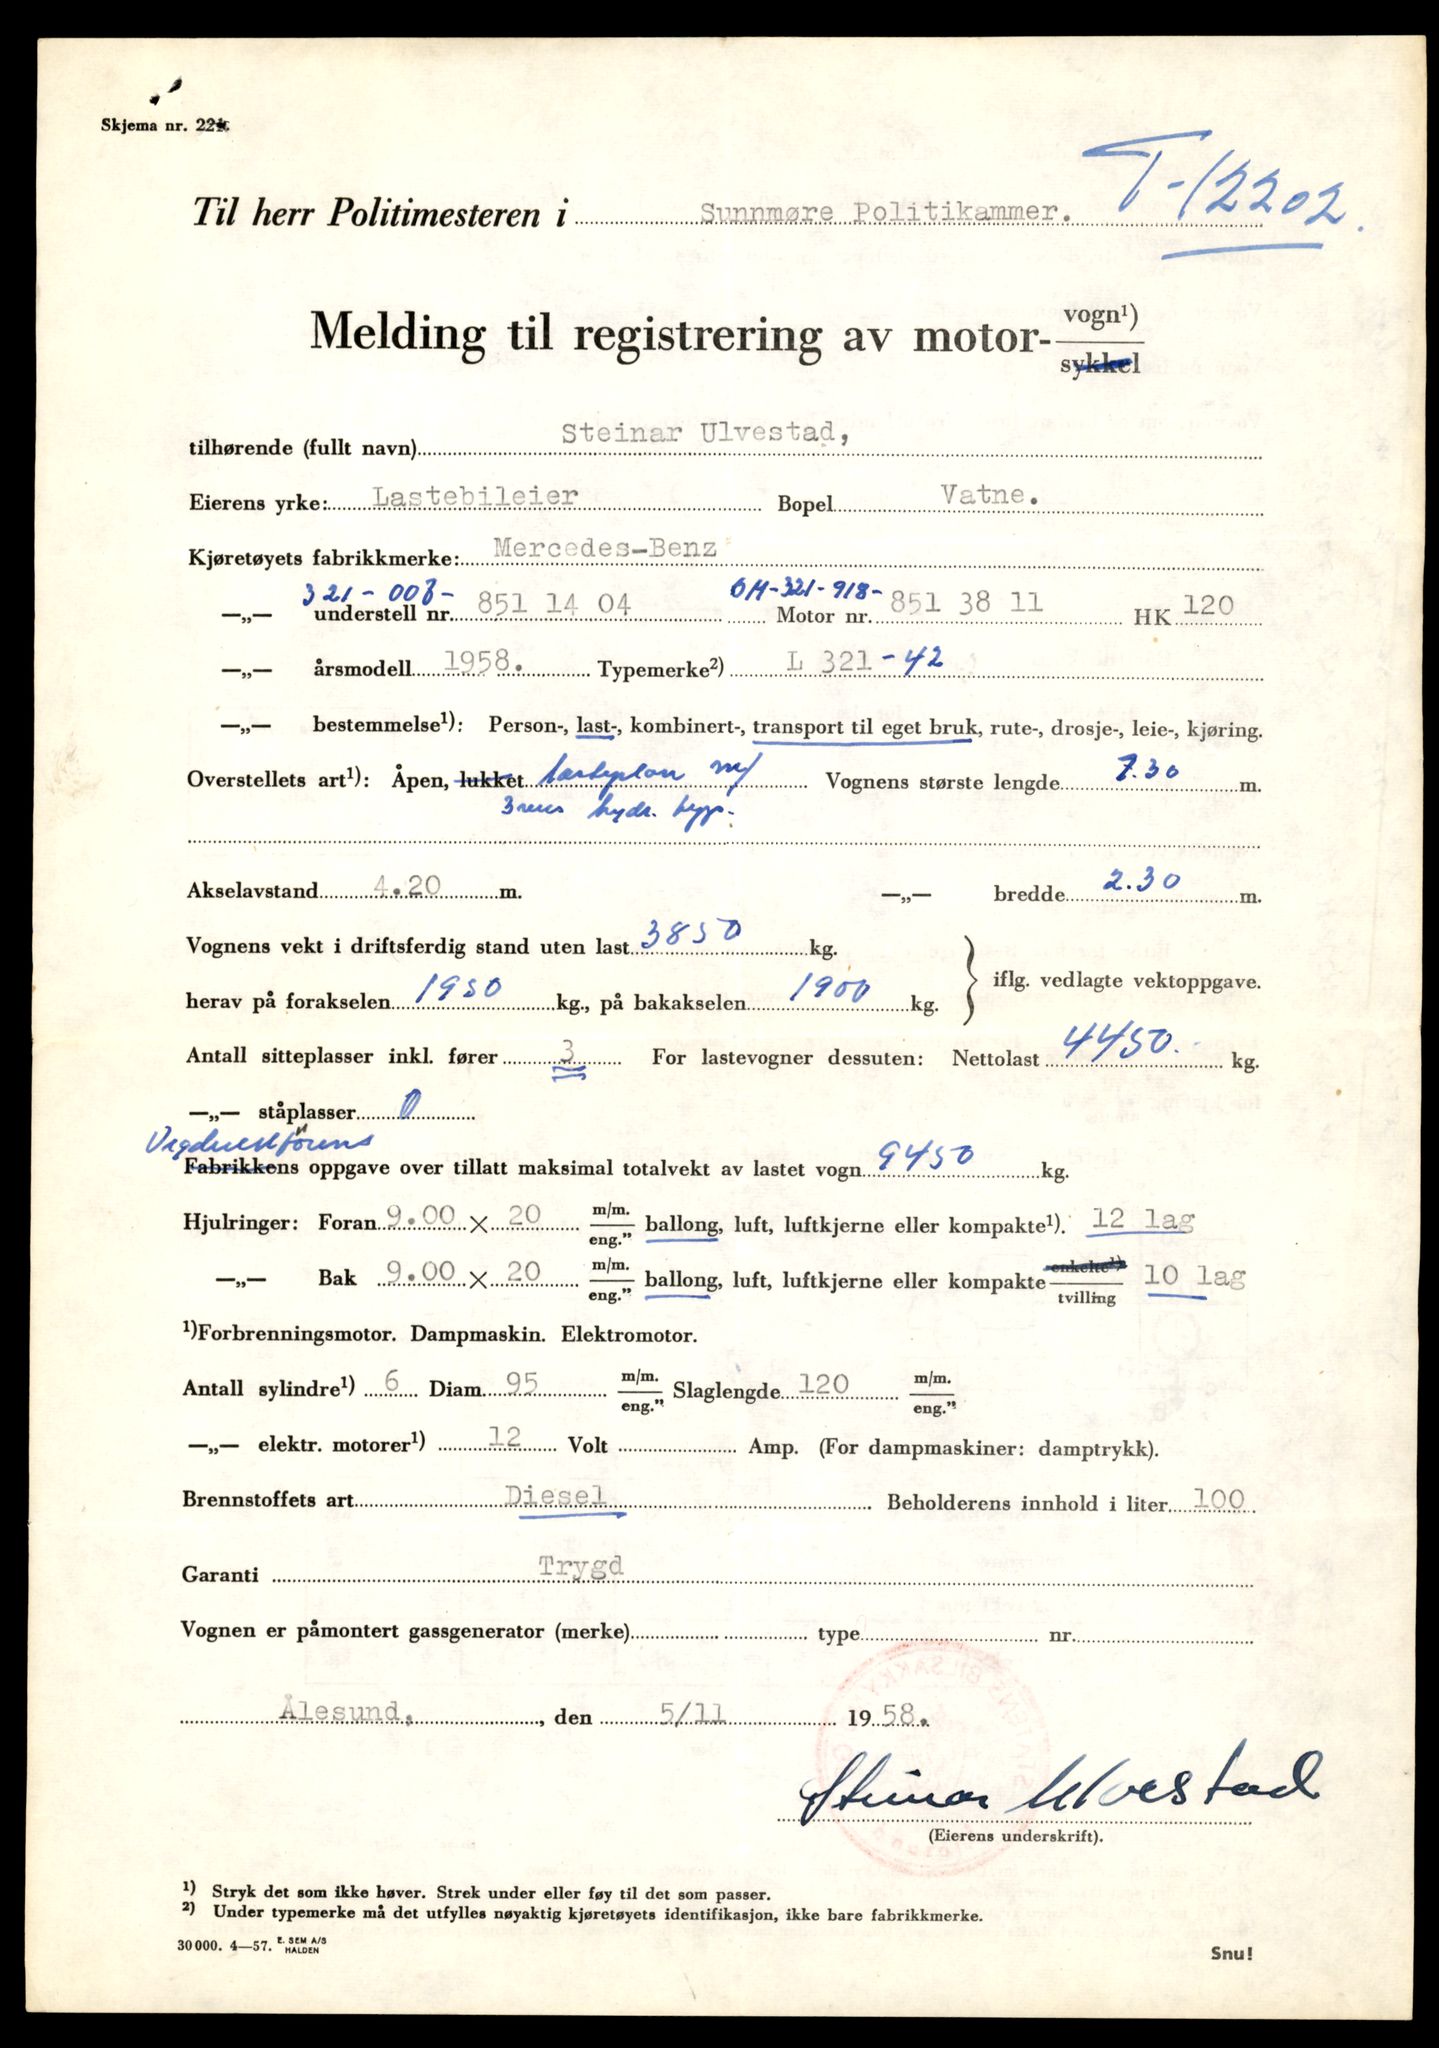 Skjema nr. 221.
T-12202.
Til herr Politimesteren i Sunnmøre Politikammer.
Melding til registrering av motor- vogn¹)
sykkel
tilhørende (fullt navn) Steinar Ulvestad,
Eierens yrke: Lastebileier Bopel Vatne.
Kjøretøyets fabrikkmerke: Mercedes-Benz
321-003- OM-321-918-
—„— understell nr. 851 14 04 Motor nr. 851 38 11 HK 120
—„— årsmodell 1958. Typemerke²) L 321-42
—„— bestemmelse¹): Person-, last-, kombinert-, transport til eget bruk, rute-, drosje-, leie-, kjøring.
Overstellets art¹): Åpen, lukket lasteplan m/ Vognens største lengde 7.30 m.
3 hydr. tipp.
Akselavstand 4.20 m. —„— bredde 2.30 m.
Vognens vekt i driftsferdig stand uten last 3850 kg.
herav på forakselen 1950 kg., på bakakselen 1900 kg. iflg. vedlagte vektoppgave.
Antall sitteplasser inkl. fører 3 For lastevogner dessuten: Nettolast 4450. kg.
—„— ståplasser 0
Fabrikkens oppgave over tillatt maksimal totalvekt av lastet vogn 9450 kg.
Hjulringer: Foran 9.00 × 20 m/m. eng.” ballong, luft, luftkjerne eller kompakte¹). 12 lag
—„— Bak 9.00 × 20 m/m. eng.” ballong, luft, luftkjerne eller kompakte enkelte¹) tvilling 10 lag
¹)Forbrenningsmotor. Dampmaskin. Elektromotor.
Antall sylindre¹) 6 Diam. 95 m/m. eng.” Slaglengde 120 m/m. eng.”
—„— elektr. motorer¹) 12 Volt Amp. (For dampmaskiner: damptrykk).
Brennstoffets art Diesel Beholderens innhold i liter 100
Garanti Trygd
Vognen er påmontert gassgenerator (merke) type nr.
Ålesund, , den 5/11 1958.
Steinar Ulvestad
(Eierens underskrift).
¹) Stryk det som ikke høver. Strek under eller føy til det som passer.
²) Under typemerke må det utfylles nøyaktig kjøretøyets identifikasjon, ikke bare fabrikkmerke.
30 000. 4—57. E. SEM A/S HALDEN
Snu!